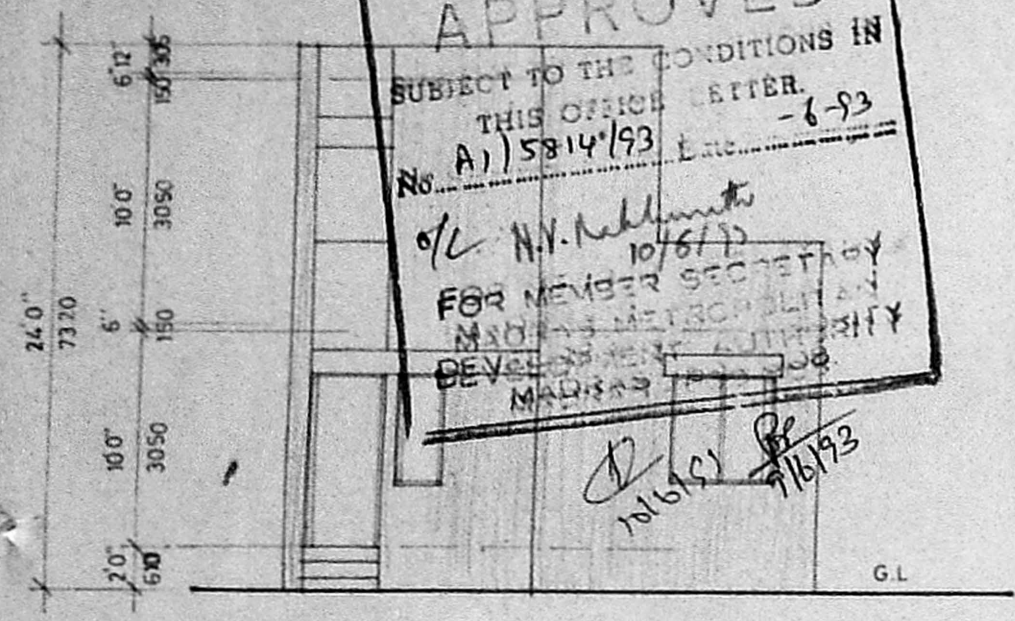 APPROVED
SUBJECT TO THE CONDITIONS IN
THIS OFFICE LETTER.
No. A1)5814/93 Date -6-93
o/c N.V.
10/6/93
FOR MEMBER SECRETARY
MADRAS METROPOLITAN
DEVELOPMENT AUTHORITY
MADRAS
10/6/93
9/6/93
6" 12"
150 305
10'0"
3050
24'0"
7320
6"
150
10'0"
3050
2'0"
610
G.L